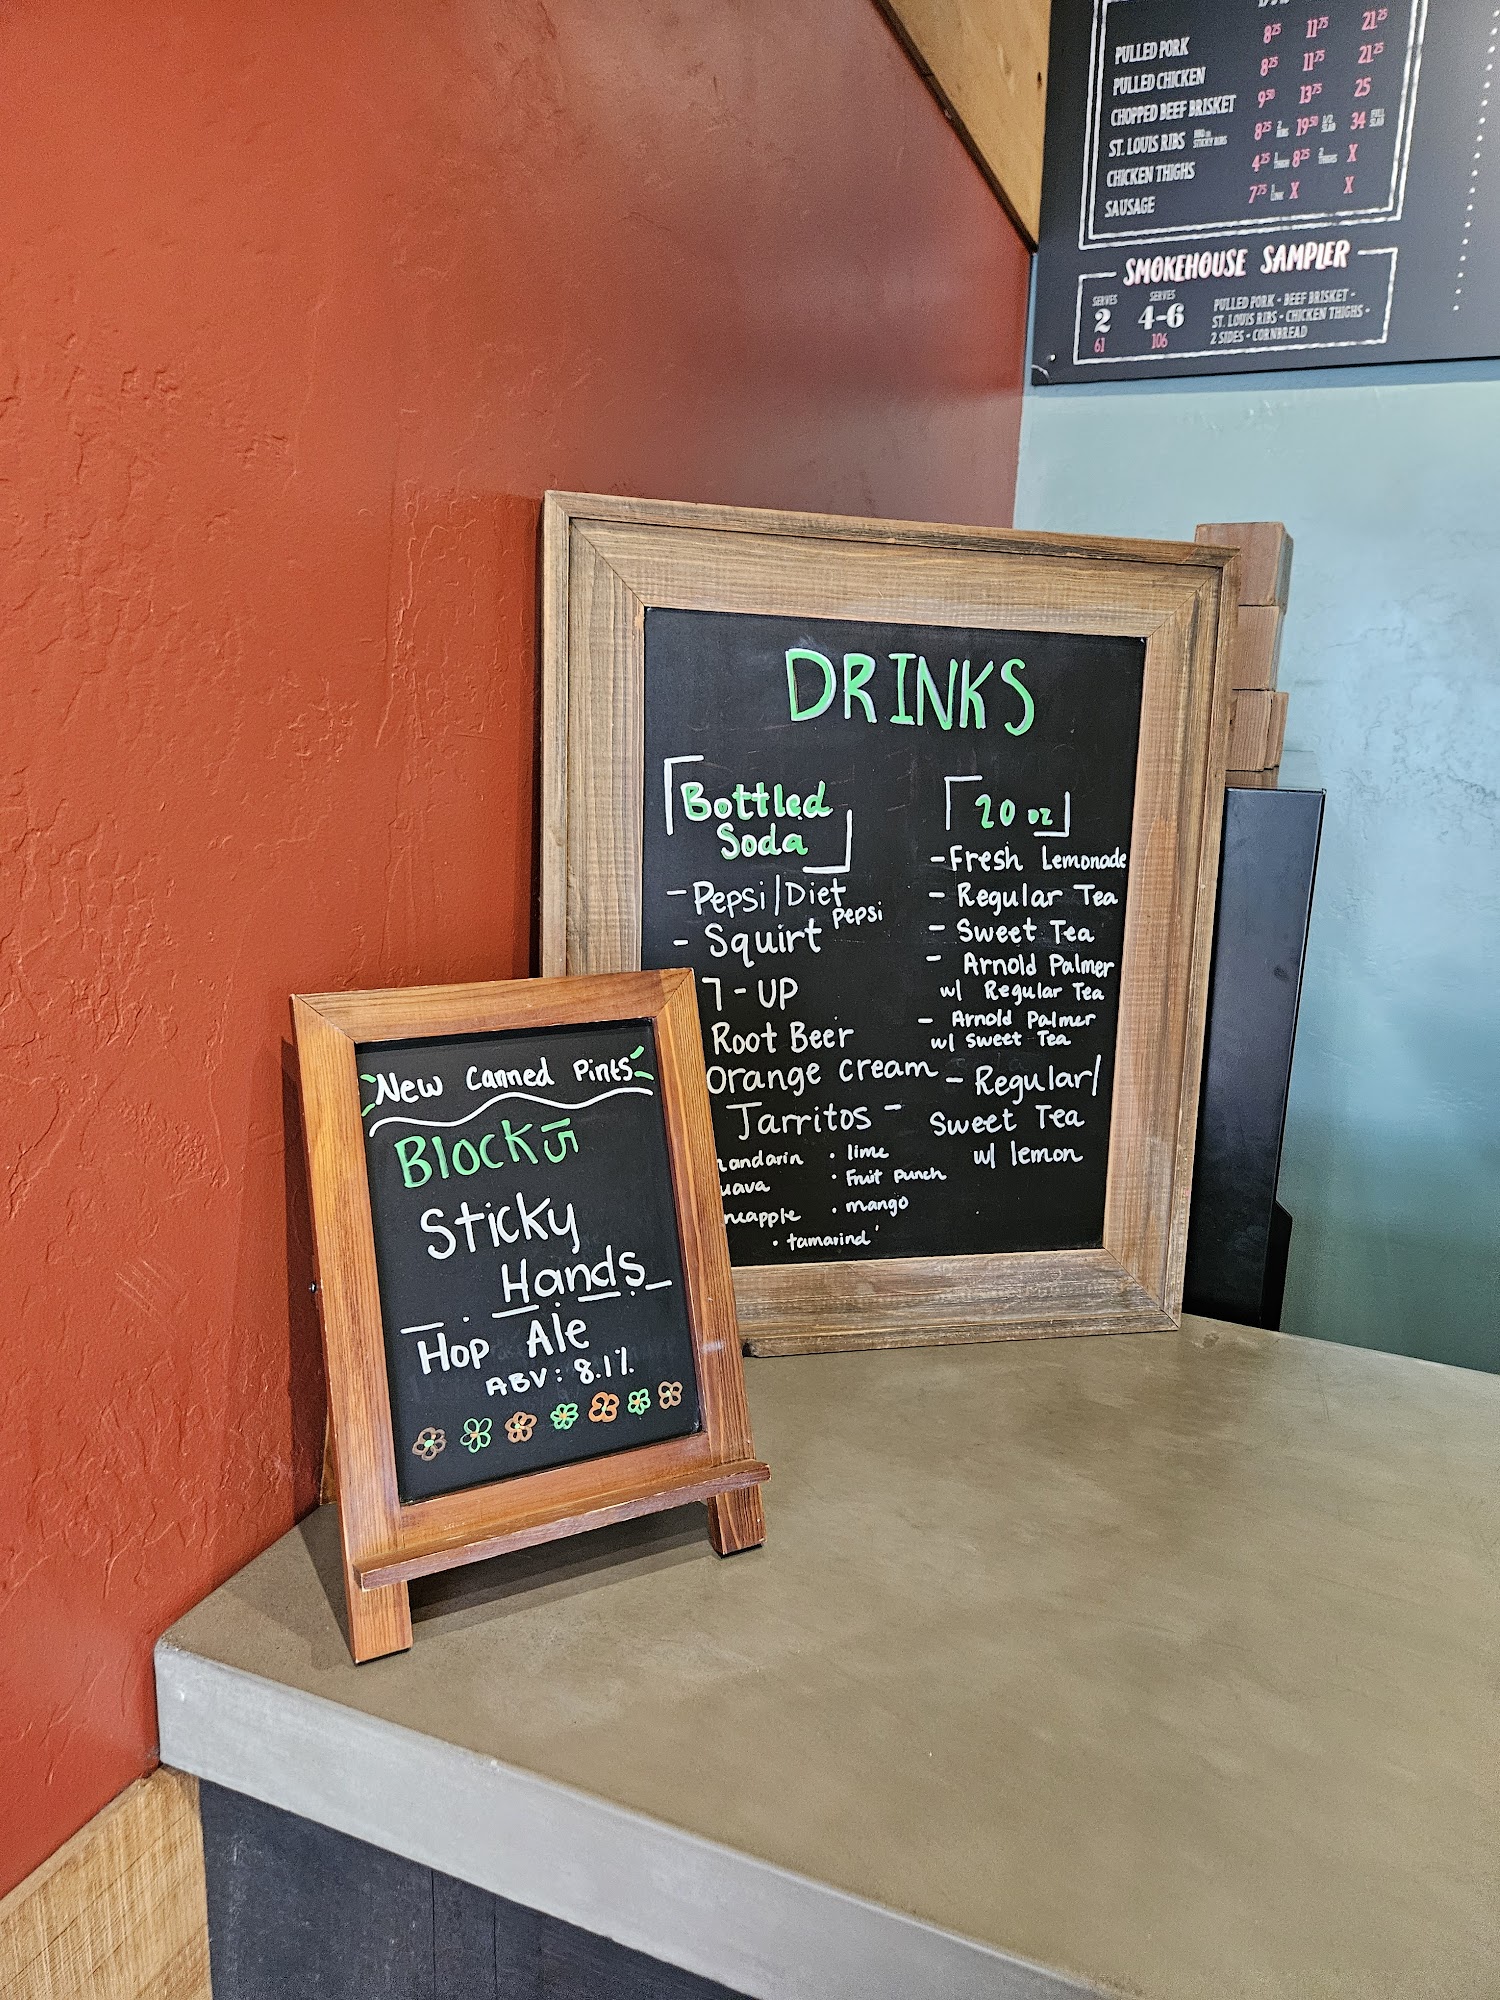 PULLED PORK 8²⁵ 11⁷⁵ 21²⁵
PULLED CHICKEN 8²⁵ 11⁷⁵ 21²⁵
CHOPPED BEEF BRISKET 9⁵⁰ 13⁷⁵ 25
ST. LOUIS RIBS 8²⁵ 2 RIBS 19⁵⁰ 1/2 SLAB 34 FULL SLAB
CHICKEN THIGHS 4²⁵ 1 THIGH 8²⁵ 2 THIGHS X
SAUSAGE 7⁷⁵ 1 LINK X X
SMOKEHOUSE SAMPLER
SERVES
2
61
SERVES
4-6
106
PULLED PORK - BEEF BRISKET -
ST. LOUIS RIBS - CHICKEN THIGHS -
2 SIDES - CORNBREAD
DRINKS
Bottled
Soda
- Pepsi/Diet
Pepsi
- Squirt
7-UP
Root Beer
Orange cream
Jarritos -
andarin
uava
neapple
· lime
· Fruit Punch
· mango
· tamarind
20 oz
- Fresh Lemonade
- Regular Tea
- Sweet Tea
- Arnold Palmer
w/ Regular Tea
- Arnold Palmer
w/ Sweet Tea
- Regular/
Sweet Tea
w/ lemon
New Canned Pints
Block 15
Sticky
Hands
Hop Ale
ABV: 8.1%